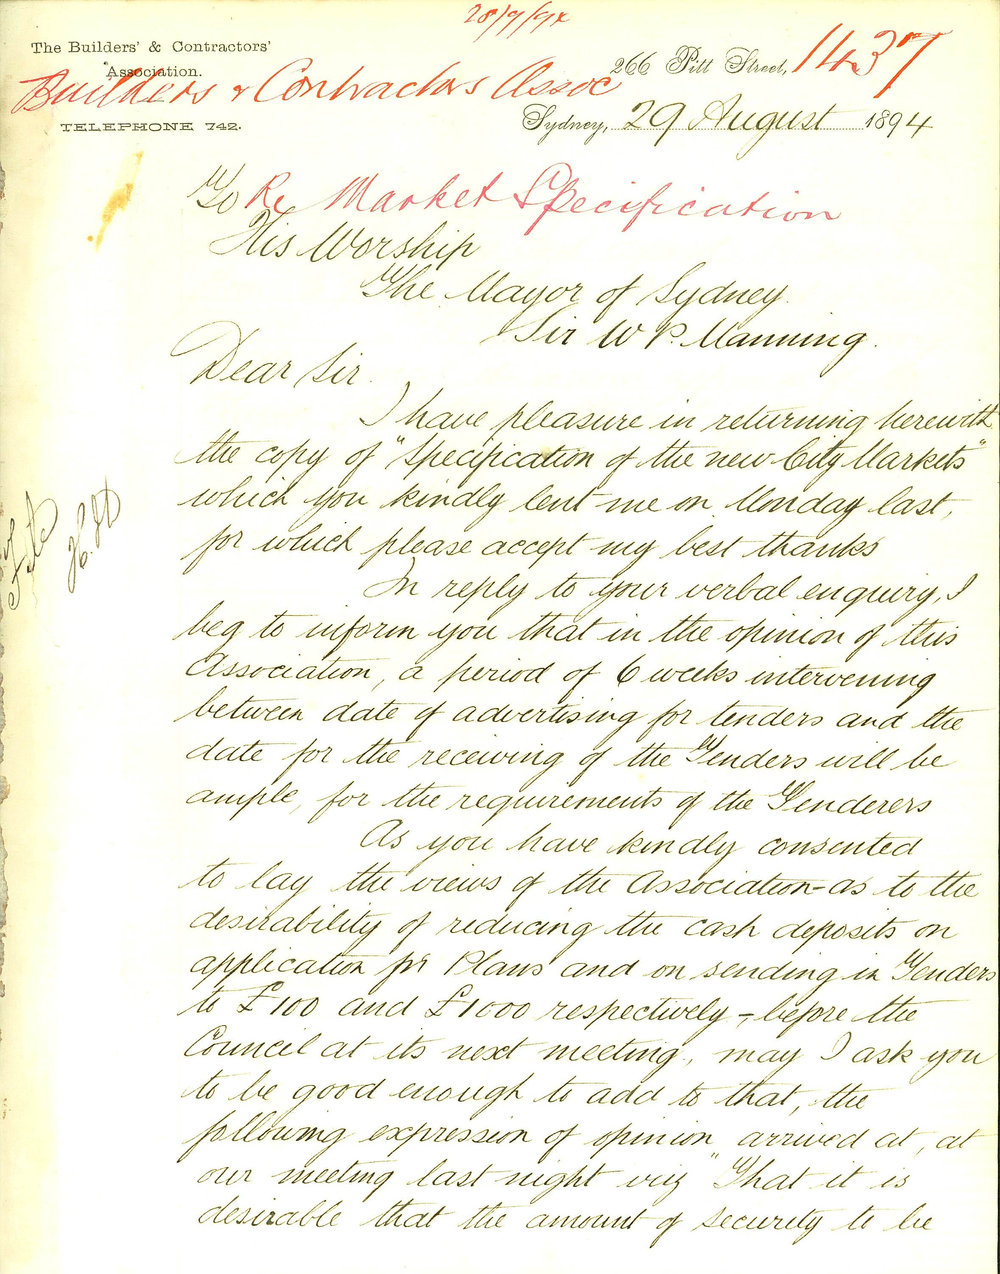 28/9/94
The Builders' & Contractors'
Association.
266 Pitt Street, 1437
Builders & Contractors Assoc
TELEPHONE 742.
Sydney, 29 August 1894
To Re Market Specification
His Worship
The Mayor of Sydney.
Sir W P Manning.
Dear Sir.
I have pleasure in returning herewith
the copy of "Specification of the new City Markets"
which you kindly lent me on Monday last,
for which please accept my best thanks
In reply to your verbal enquiry, I
beg to inform you that in the opinion of this
Association, a period of 6 weeks intervening
between date of advertising for tenders and the
date for the receiving of the Tenders will be
ample, for the requirements of the Tenderers
As you have kindly consented
to lay the views of the Association - as to the
desirability of reducing the cash deposits on
application for Plans and on sending in Tenders
to £100 and £1000 respectively -, before the
Council at its next meeting, may I ask you
to be good enough to add to that, the
following expression of opinion arrived at, at
our meeting last night viz "That it is
desirable that the amount of security to be
File